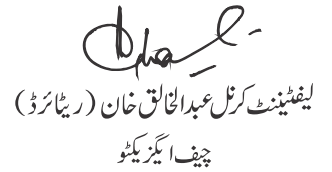 لیفٹیننٹ کرنل عبدالخالق خان (ریٹائرڈ)
چیف ایگزیکٹو